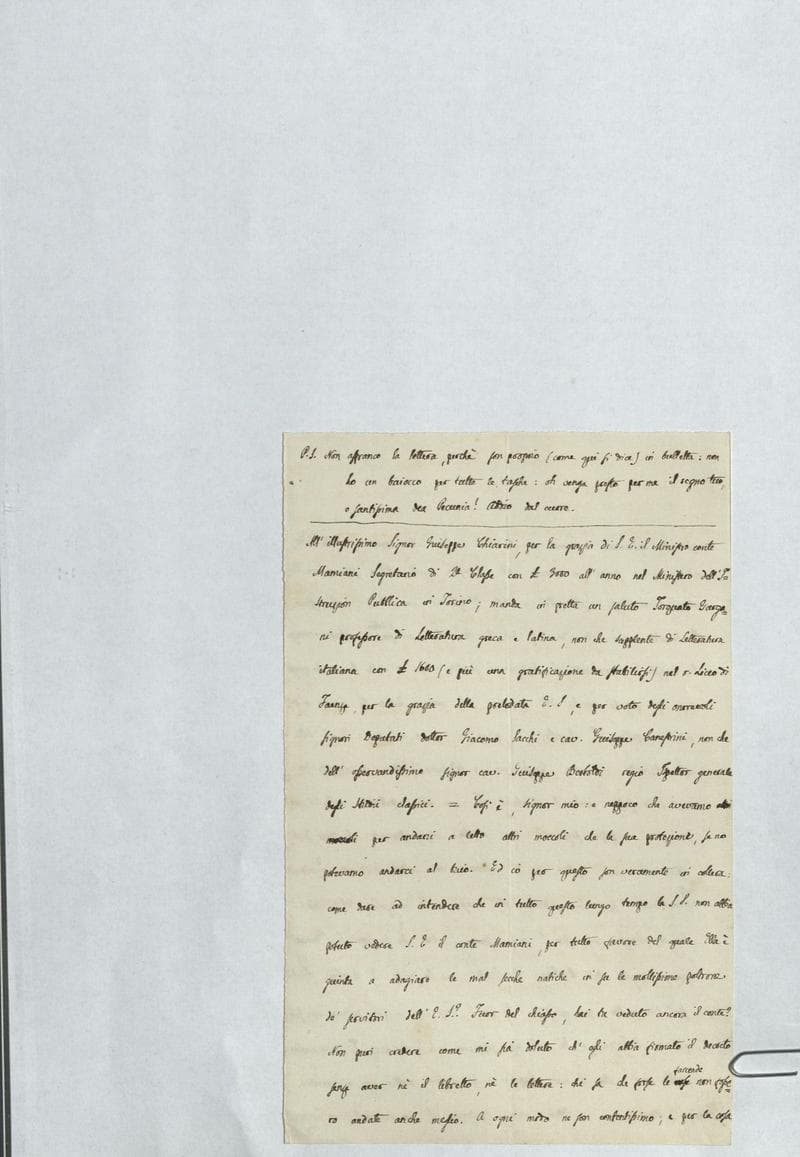 P.S. Non affranco la lettera, perchè son proprio (come qui si dice) in bulletta: non
ho un baiocco per tutte le tasche: oh venga presto per me il regno tuo,
o santissima dea Pecunia! Addio dal cuore.
All' illustrissimo Signor Giuseppe Chiarini, per la grazia di S. E. il Ministro conte
Mamiani Segretario di 2ª Classe con £ 3000 all' anno nel Ministero dell' I
struzion Pubblica in Torino; manda in fretta un saluto Torquato Garga
ni professore di Letteratura greca e latina, non che supplente di Letteratura
italiana con £ 1660 (e più una gratificazione da stabilirsi) nel r. Liceo di
Faenza, per la grazia della prelodata E. S., e per voto degli onorevoli
signori Deputati dottor Giacomo Sacchi e cav. Giuseppe Canestrini, non che
dell' osservandissimo signor cav. Giuseppe Bertoldi regio Ispettor generale
degli studi classici. = Così è, signor mio: e neppoco che avevamo
per andarci a letto altri moccoli che la sua protezione, se no
potevamo andarci al buio. Ed io per questo son veramente in collera:
come dare ad intendere che in tutto questo lungo tempo la S. S. non abbia
potuto vedere S. E. il conte Mamiani, per tutto favore del quale Ella è
giunta a adagiare le mal secche natiche in su le mollissime poltrone
de' servitori dell' E. S.? Fuor del chiasso, hai tu veduto ancora il conte?
Non puoi credere come mi sia doluto ch' egli abbia firmato il decreto
senza aver nè il libretto, nè le lettere: chi sa che forse le faccende non
ro andate anche meglio. A ogni modo ne son contentissimo; e per la cosa